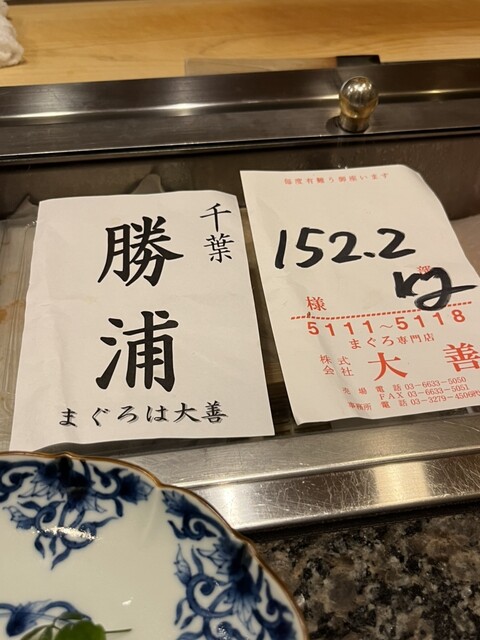 千葉
勝浦
まぐろは大善
毎度有難う御座います
152.2
kg
様
5111〜5118
まぐろ専門店
株式会社 大善
売場電話 03-6633-5050
FAX 03-6633-5051
事務所 電話 03-3279-4506